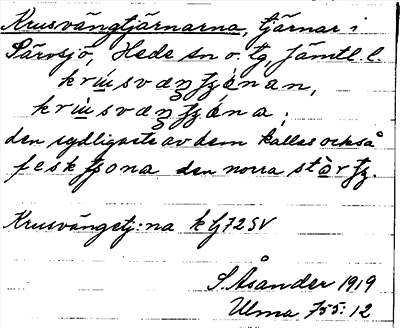 Krusvängtjärnarna, tjärnar i
Särvsjö, Hede sn o. tg, Jämtl. l.
krúsvæŋtjánan,
krúsvæŋtjána;
den sydligaste av dem kallas också
fesktjona den norra stàrtj.
Krusvängstj:na kbl 72 SV
S. Åsander 1919
Ulma 755:12